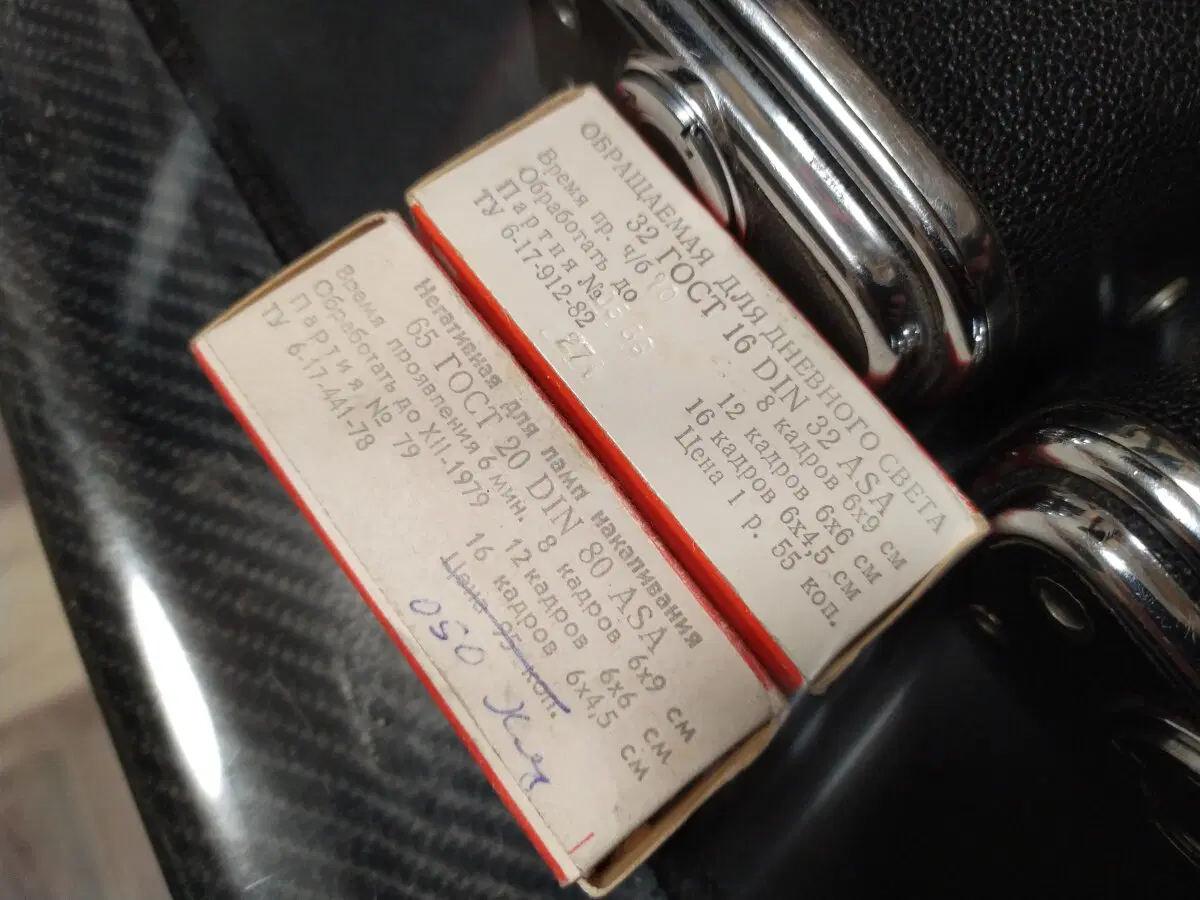 ОБРАЩАЕМАЯ ДЛЯ ДНЕВНОГО СВЕТА
32 ГОСТ 16 DIN 32 ASA
Время пр. ч/б
8 кадров 6х9 см
Обработать до
12 кадров 6х6 см
Партия №
16 кадров 6х4,5 см
ТУ 6-17-912-82
Цена 1 р. 55 коп.
27
Негативная для ламп накаливания
65 ГОСТ 20 DIN 80 ASA
Время проявления 6 мин.
8 кадров 6х9 см
Обработать до XII-1979
12 кадров 6х6 см
Партия № 79
16 кадров 6х4,5 см
ТУ 6-17-441-78
Цена 95 коп.
050